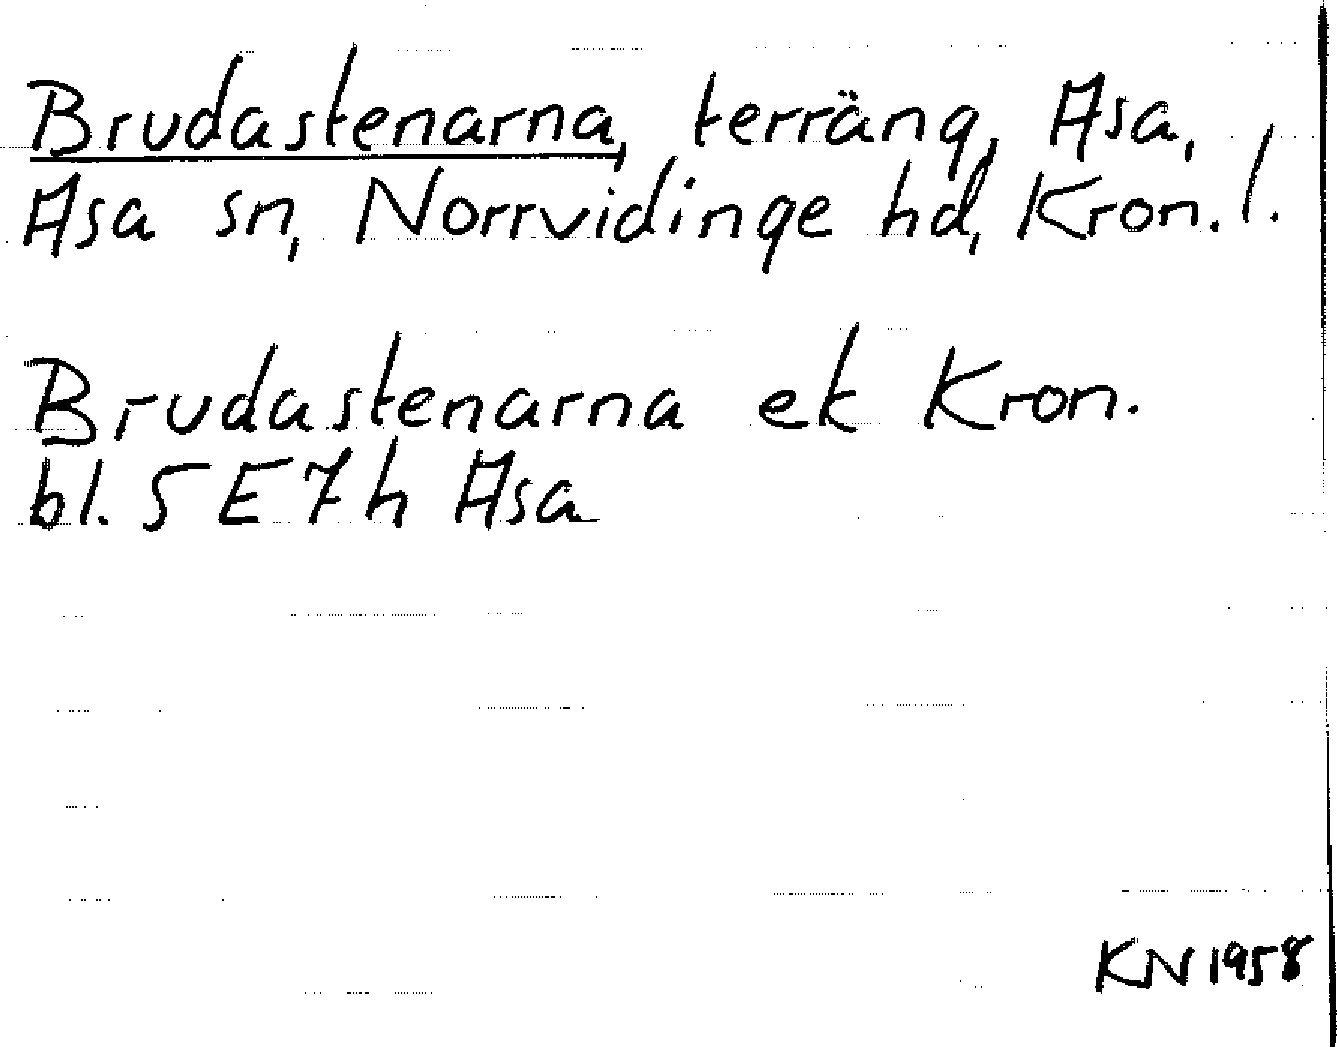 Brudastenarna, terräng, Asa,
Asa sn, Norrvidinge hd, Kron. l.
Brudastenarna ek Kron.
bl. 5 E 7 h Asa
KN 1958